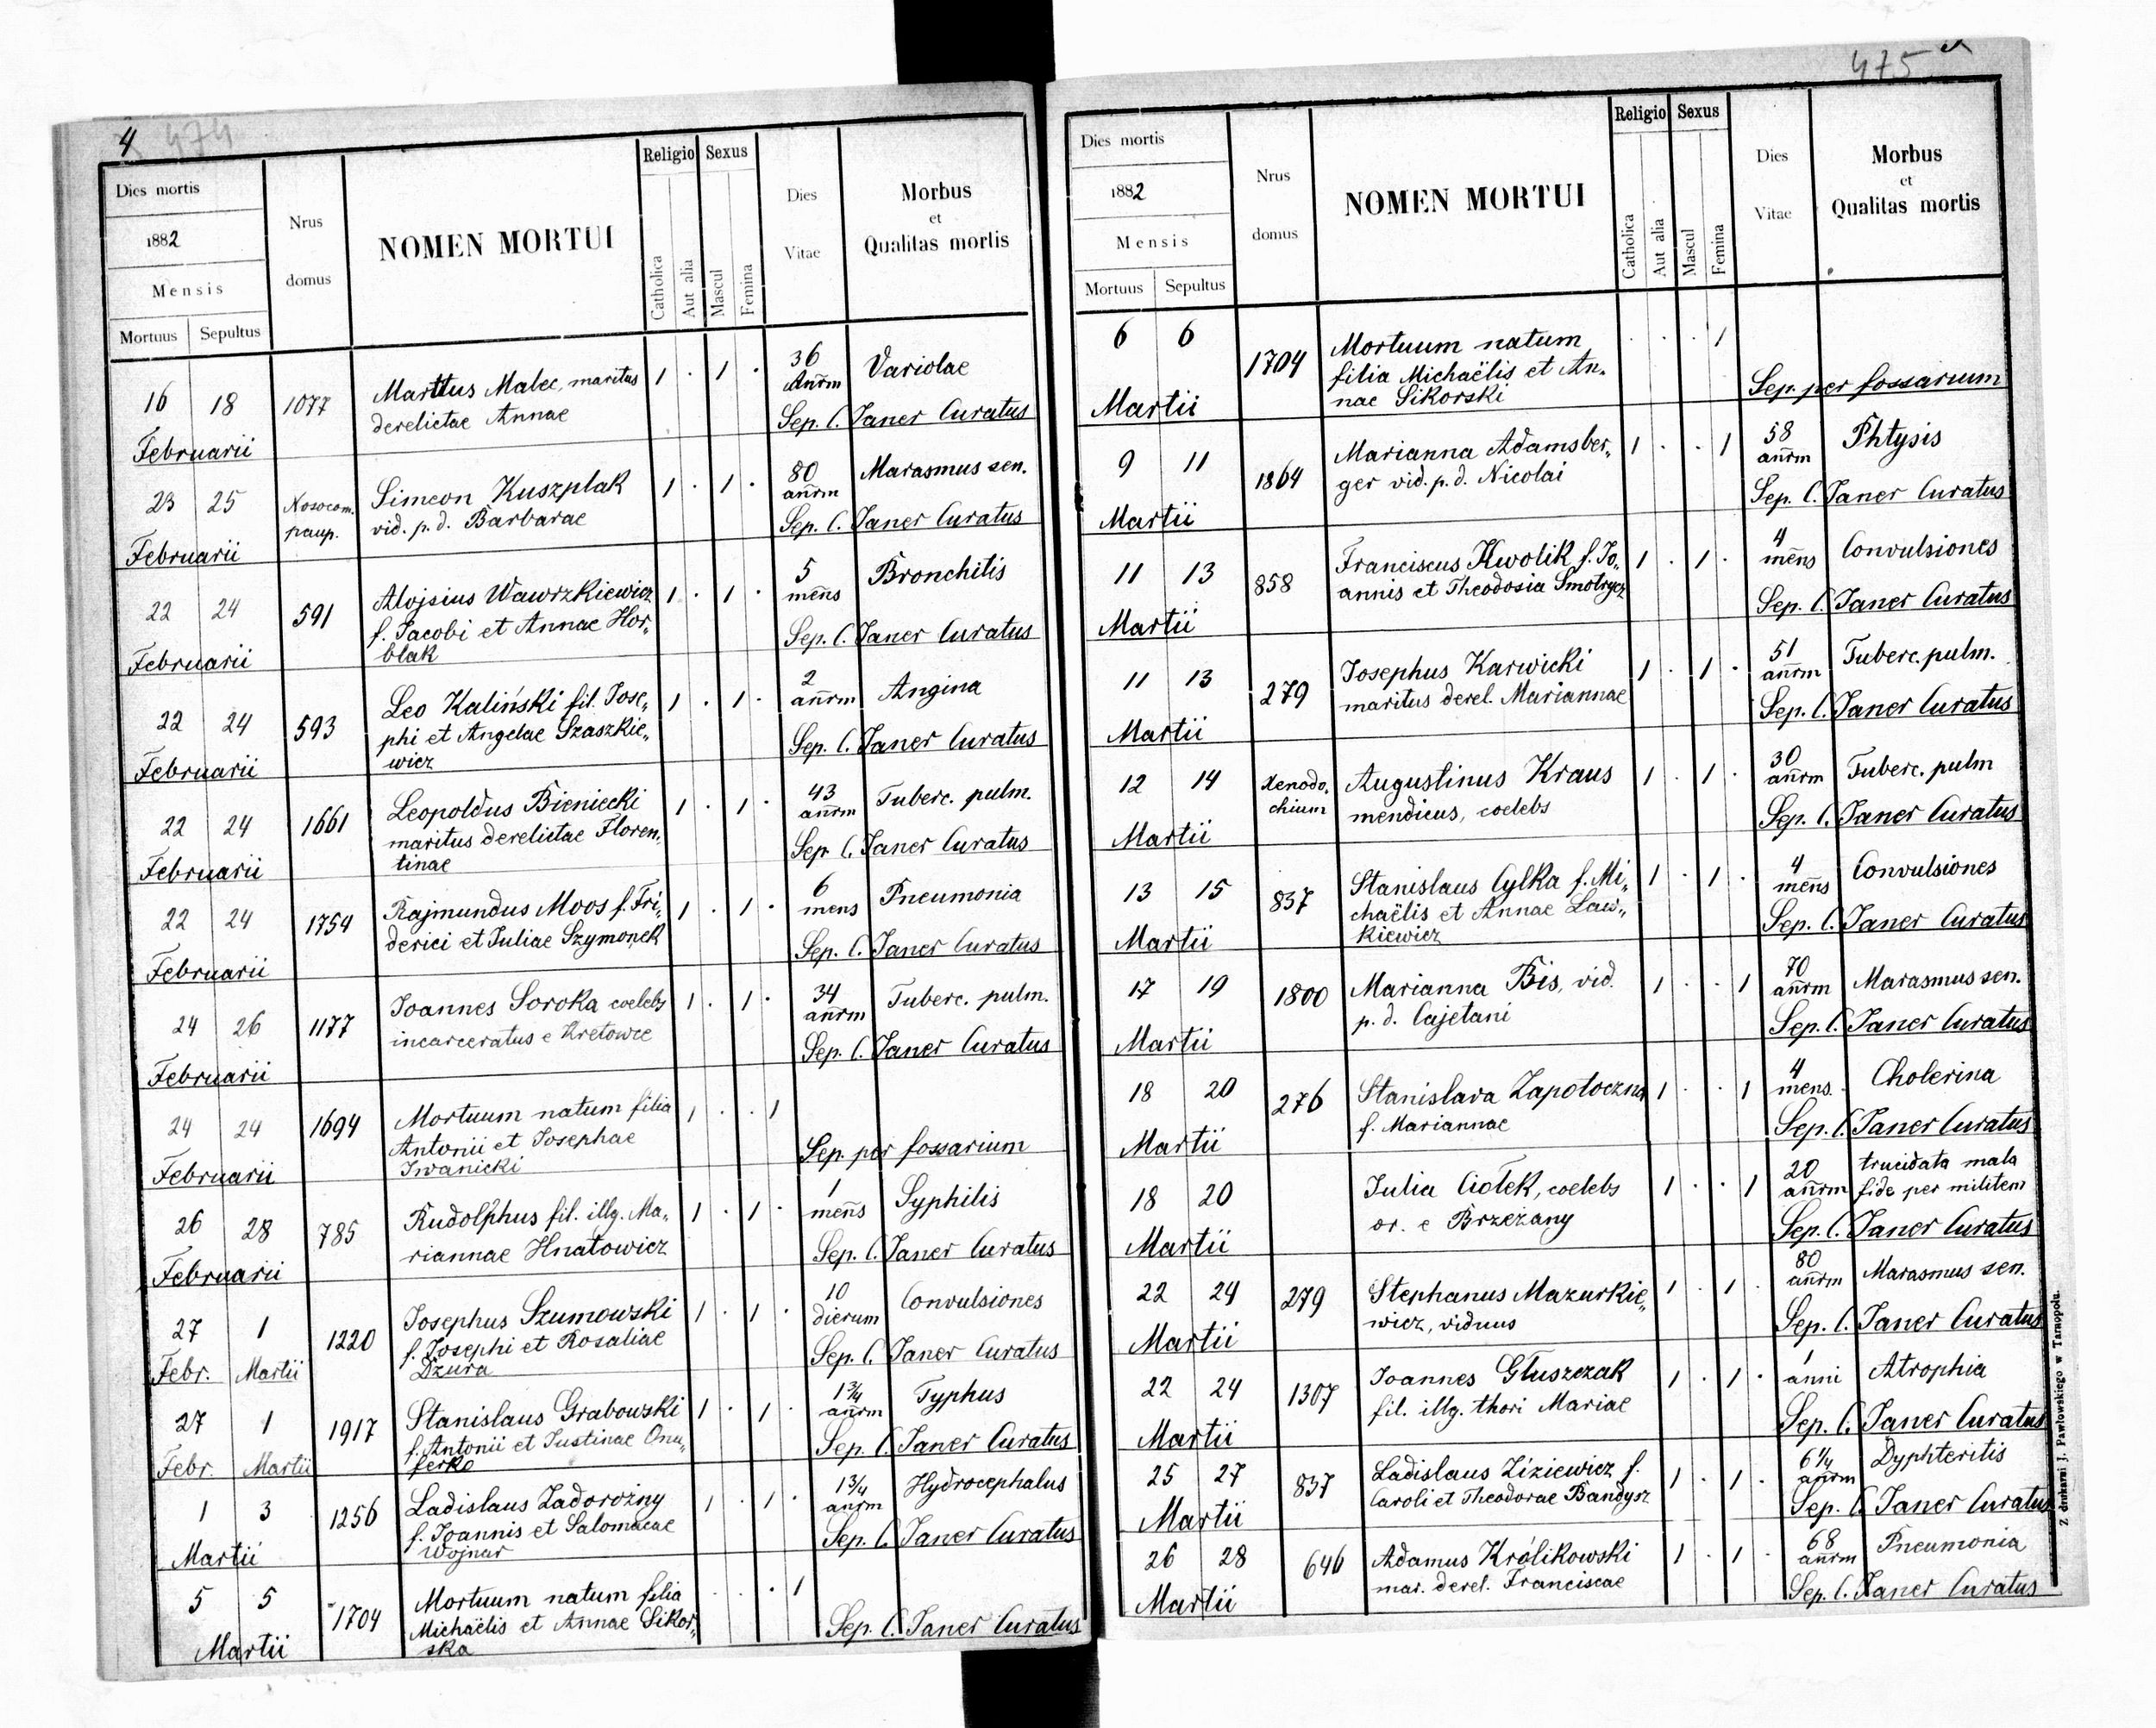 4 474
Dies mortis
1882
Mensis
Mortuus Sepultus
Nrus
domus
NOMEN MORTUI
Religio
Catholica
Aut alia
Sexus
Mascul
Femina
Dies
Vitae
Morbus
et
Qualitas mortis
16 18 1077 Februarii
Martinus Malec, maritus
derelictae Annae
1 . 1 .
36
Annrm
Variolae
Sep. C. Janer Curatus
23 25 Februarii
Nosocom.
paup.
Simeon Kuszplak
vid. p. d. Barbarae
1 . 1 .
80
annrm
Marasmus sen.
Sep. C. Janer Curatus
22 24 591 Februarii
Alojsius Wawrzkiewicz
f. Jacobi et Annae Hor„
blak
1 . 1 .
5
mens
Bronchitis
Sep. C. Janer Curatus
22 24 593 Februarii
Leo Kaliński fil. Jose„
phi et Angelae Szaszkie„
wicz
1 . 1 .
2
annrm
Angina
Sep. C. Janer Curatus
22 24 1661 Februarii
Leopoldus Bieniecki
maritus derelictae Floren„
tinae
1 . 1 .
43
annrm
Tuberc. pulm.
Sep. C. Janer Curatus
22 24 1754 Februarii
Rajmundus Moos f. Fri„
derici et Juliae Szymonek
1 . 1 .
6
mens
Pneumonia
Sep. C. Janer Curatus
24 26 1177 Februarii
Joannes Soroka coelebs
incarceratus e Kretowce
1 . 1 .
34
annrm
Tuberc. pulm.
Sep. C. Janer Curatus
24 24 1694 Februarii
Mortuum natum filia
Antonii et Josephae
Iwanicki
1 . . 1
Sep. per fossarium
26 28 785 Februarii
Rudolphus fil. illg. Ma„
riannae Hnatowicz
1 . 1 .
1
mens
Syphilis
Sep. C. Janer Curatus
27 1 1220
Febr. Martii
Josephus Szumowski
f. Josephi et Rosaliae
Dzura
1 . 1 .
10
dierum
Convulsiones
Sep. C. Janer Curatus
27 1 1917
Febr. Martii
Stanislaus Grabowski
f. Antonii et Justinae Onu„
ferko
1 . 1 .
1 3/4
annrm
Typhus
Sep. C. Janer Curatus
1 3 1256 Martii
Ladislaus Zadorożny
f. Joannis et Salomeae
Wojnar
1 . 1 .
1 3/4
annrm
Hydrocephalus
Sep. C. Janer Curatus
5 5 1704 Martii
Mortuum natum filia
Michaëlis et Annae Sikor„
ska
. . . 1
Sep. C. Janer Curatus
475
Dies mortis
1882
Mensis
Mortuus Sepultus
Nrus
domus
NOMEN MORTUI
Religio
Catholica
Aut alia
Sexus
Mascul
Femina
Dies
Vitae
Morbus
et
Qualitas mortis
6 6 1704 Martii
Mortuum natum
filia Michaëlis et An„
nae Sikorski
. . . 1
Sep. per fossarium
9 11 1864 Martii
Marianna Adamsber„
ger vid. p. d. Nicolai
1 . . 1
58
annrm
Phtysis
Sep. C. Janer Curatus
11 13 858 Martii
Franciscus Kwolik f. Jo„
annis et Theodosia Smotrycz
1 . 1 .
4
mens
Convulsiones
Sep. C. Janer Curatus
11 13 279 Martii
Josephus Karwicki
maritus derel. Mariannae
1 . 1 .
51
annrm
Tuberc. pulm.
Sep. C. Janer Curatus
12 14 Martii
Xenodo„
chium
Augustinus Kraus
mendicus, coelebs
1 . 1 .
30
annrm
Tuberc. pulm
Sep. C. Janer Curatus
13 15 837 Martii
Stanislaus Cylka f. Mi„
chaëlis et Annae Law„
kiewicz
1 . 1 .
4
mens
Convulsiones
Sep. C. Janer Curatus
17 19 1800 Martii
Marianna Bis, vid.
p. d. Cajetani
1 . . 1
70
annrm
Marasmus sen.
Sep. C. Janer Curatus
18 20 276 Martii
Stanislava Zapotoczna
f. Mariannae
1 . . 1
4
mens.
Cholerina
Sep. C. Janer Curatus
18 20 Martii
Julia Ciołek, coelebs
or. e Brzeżany
1 . . 1
20
annrm
trucidata mala
fide per militem
Sep. C. Janer Curatus
22 24 279 Martii
Stephanus Mazurkie„
wicz, viduus
1 . 1 .
80
annrm
Marasmus sen.
Sep. C. Janer Curatus
22 24 1307 Martii
Joannes Głuszczak
fil. illg. thori Mariae
1 . 1 .
1
anni
Atrophia
Sep. C. Janer Curatus
25 27 837 Martii
Ladislaus Ziziewicz f.
Caroli et Theodorae Bandysz
1 . 1 .
6 1/4
annrm
Dyphteritis
Sep. C. Janer Curatus
26 28 646 Martii
Adamus Królikowski
mar. derel. Franciscae
1 . 1 .
68
annrm
Pneumonia
Sep. C. Janer Curatus
Z drukarni J. Pawłowskiego w Tarnopolu.